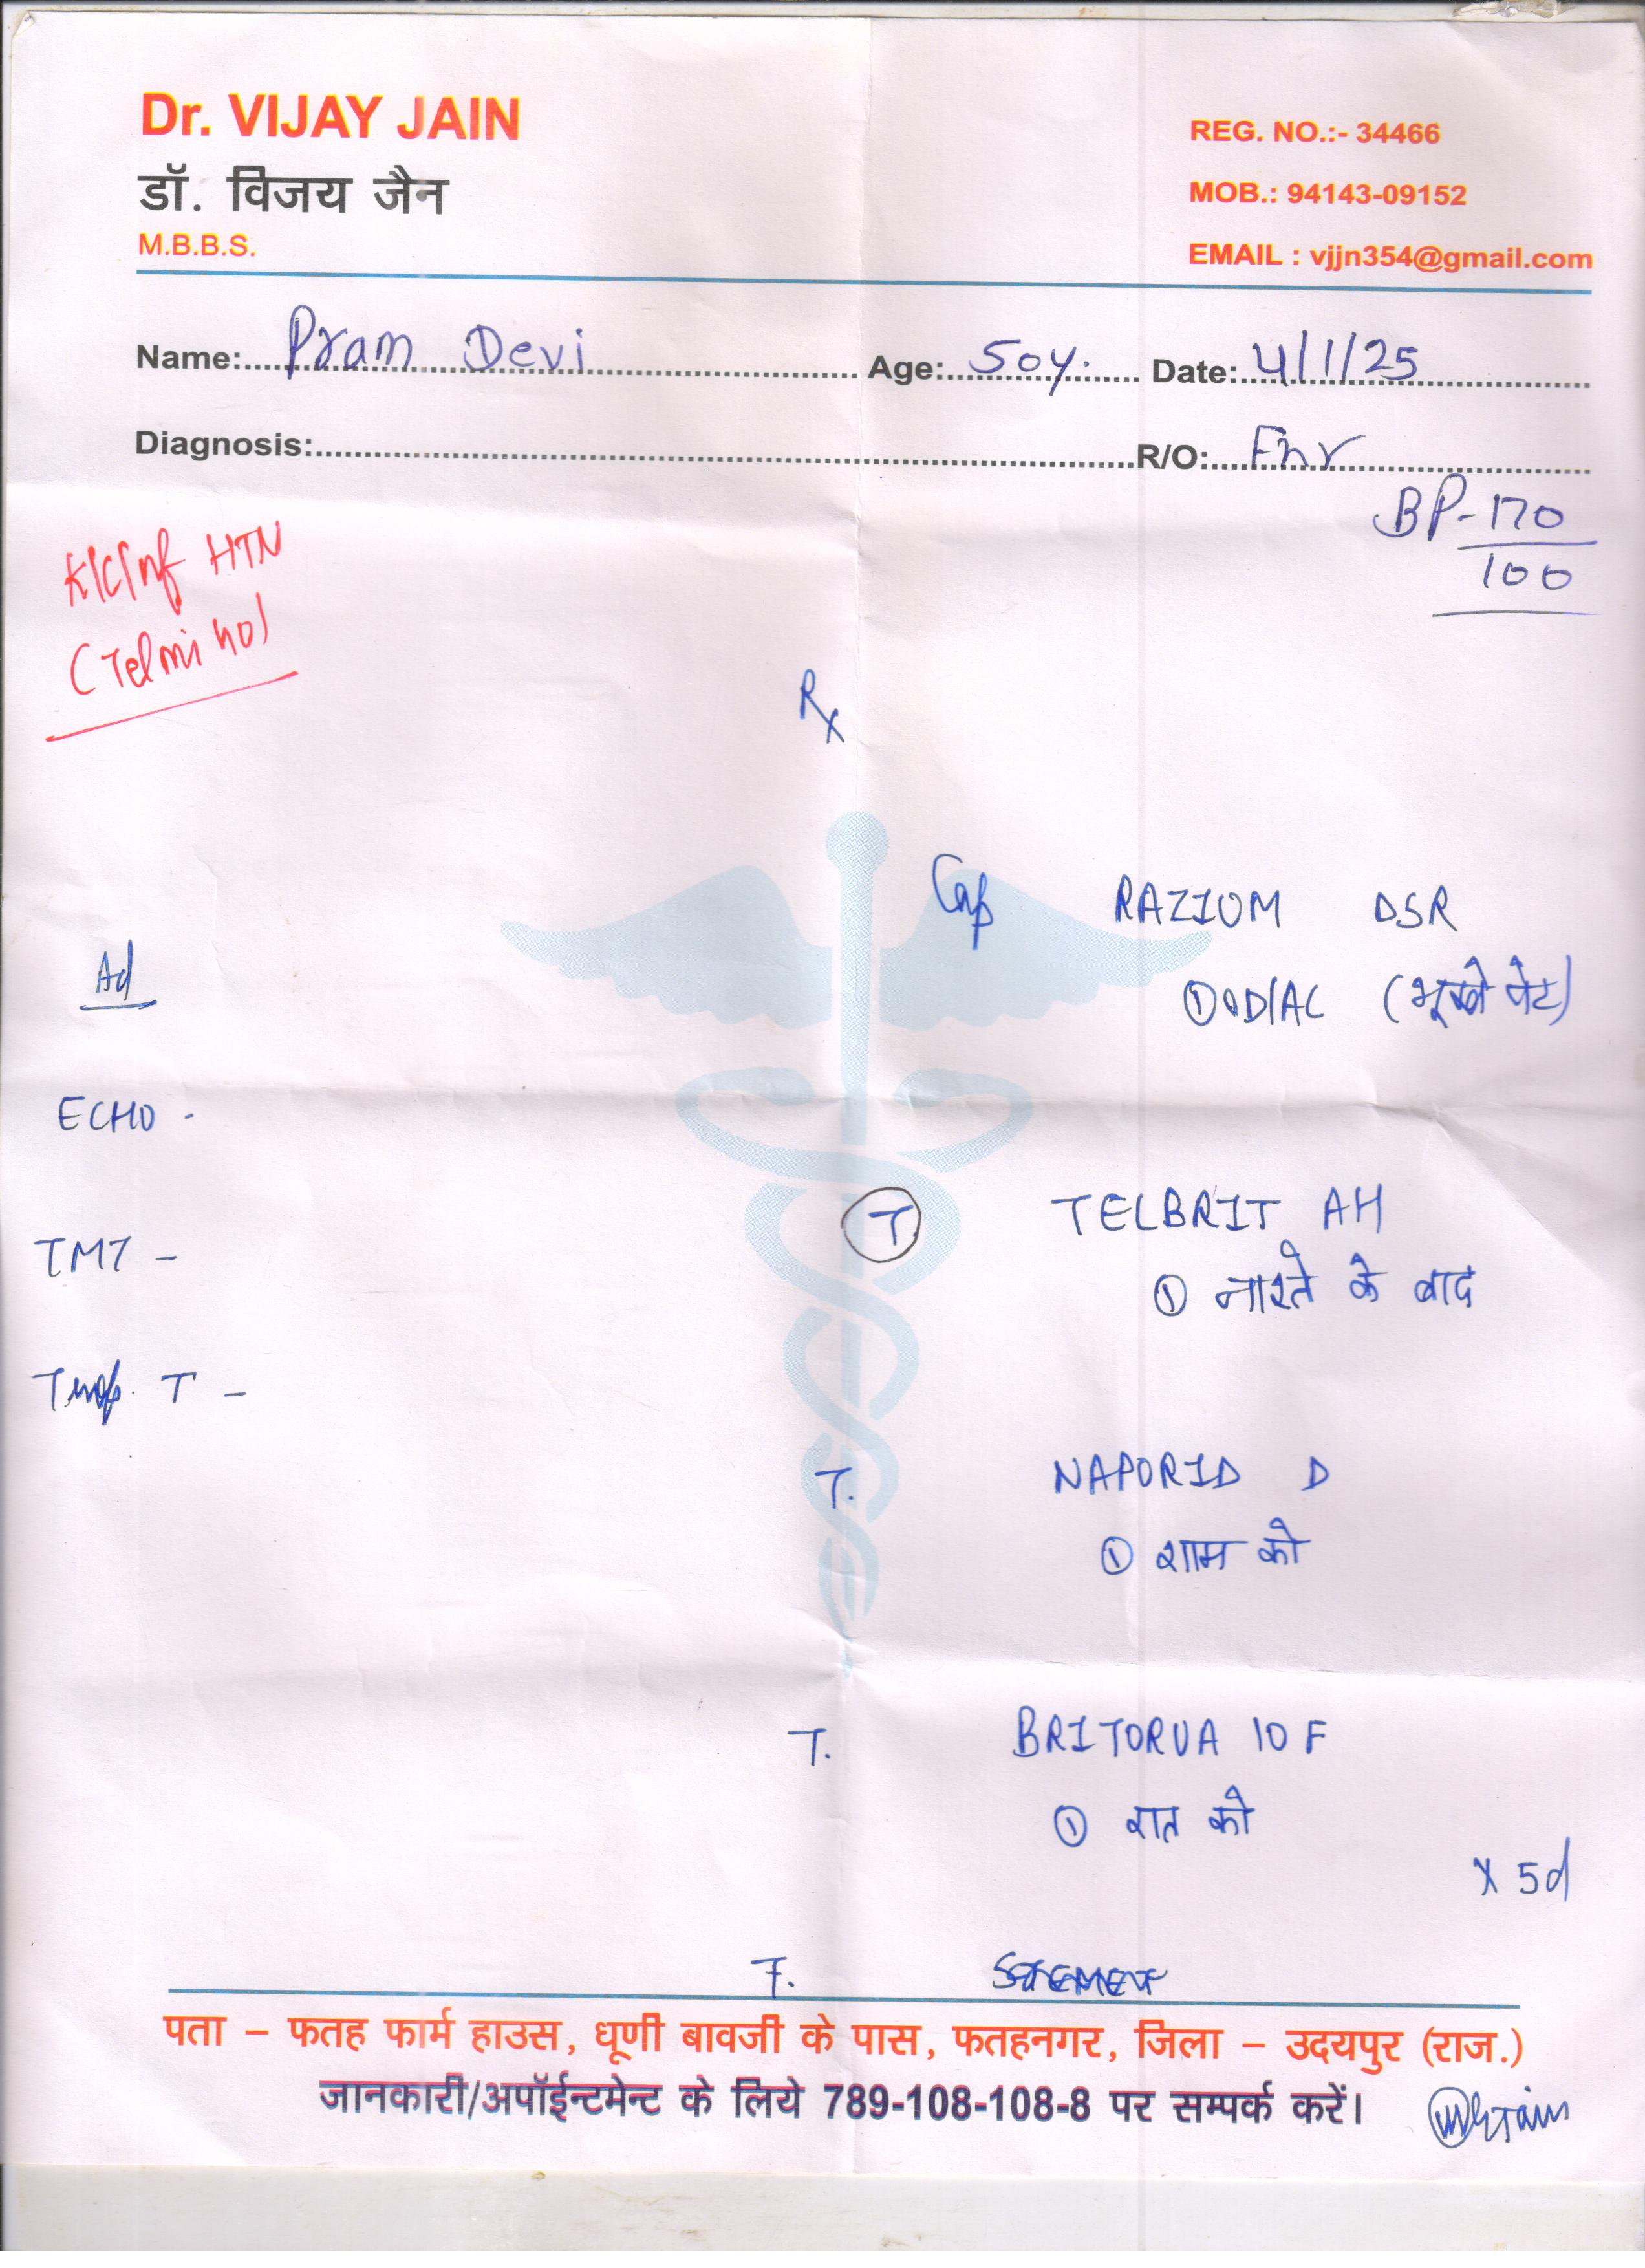 Dr. VIJAY JAIN
डॉ. विजय जैन
M.B.B.S.
REG. NO.:- 34466
MOB.: 94143-09152
EMAIL : vjjn354@gmail.com
Name: Pram Devi Age: 50y. Date: 4/1/25
Diagnosis: R/O: Fnr
BP-170
100
K/C/o HTN
(Telmi 40)
Rx
Cap RAZIOM DSR
① OD/AC (भूखे पेट)
Ad
ECHO -
T TELBRIT AH
① नाश्ते के बाद
TMT -
Trop. T -
T. NAPORID D
① शाम को
T. BRITORVA 10 F
① रात को
x 5d
T.
पता – फतह फार्म हाउस, धूणी बावजी के पास, फतहनगर, जिला – उदयपुर (राज.)
जानकारी/अपॉईन्टमेन्ट के लिये 789-108-108-8 पर सम्पर्क करें।